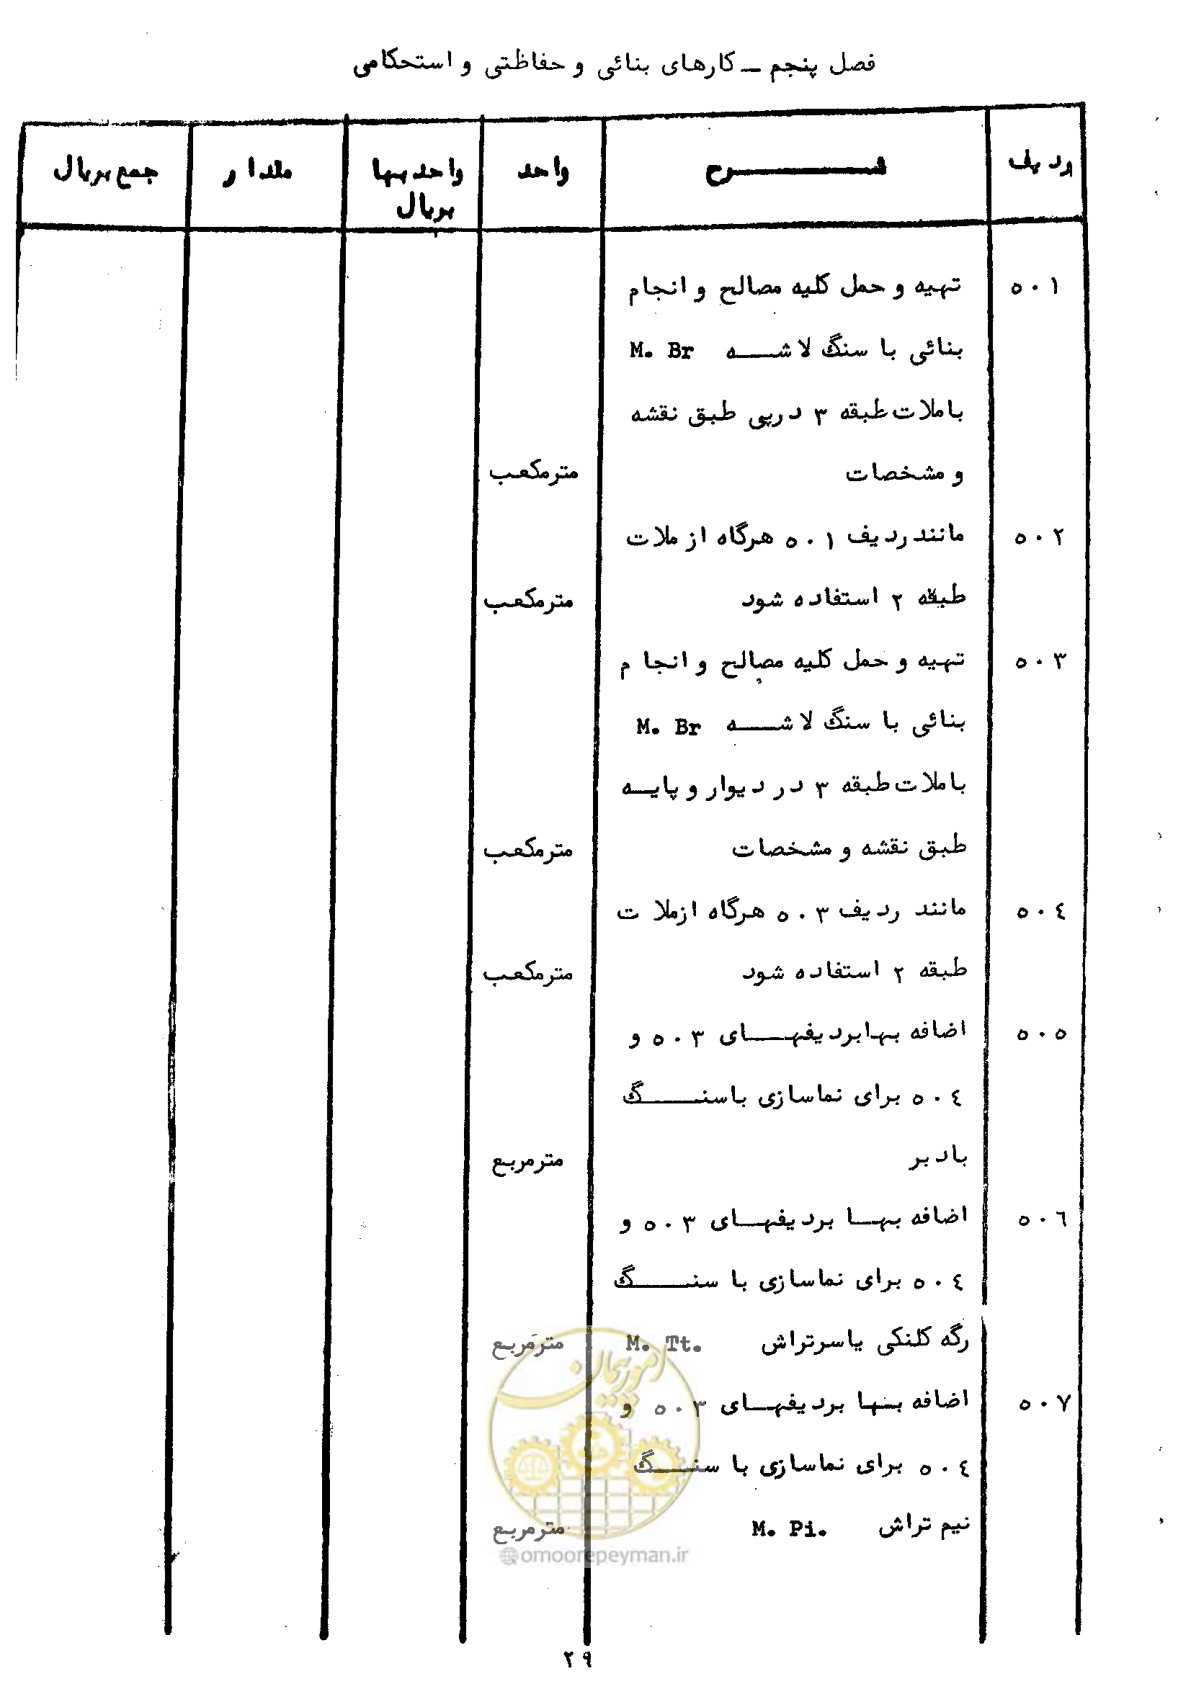 فصل پنجم ــ کارهای بنائی و حفاظتی و استحکامی
ردیف شـــــــرح واحد واحد بها بریال مقدار جمع بریال
۵۰۱ تهیه و حمل کلیه مصالح و انجام
بنائی با سنگ لاشـــه M. Br
باملات طبقه ۳ درپی طبق نقشه
و مشخصات مترمکعب
۵۰۲ مانند ردیف ۵۰۱ هرگاه از ملات
طبقه ۲ استفاده شود مترمکعب
۵۰۳ تهیه و حمل کلیه مصالح و انجام
بنائی با سنگ لاشـــه M. Br
باملات طبقه ۳ در دیوار و پایــه
طبق نقشه و مشخصات مترمکعب
۵۰٤ مانند ردیف ۵۰۳ هرگاه ازملات
طبقه ۲ استفاده شود مترمکعب
۵۰۵ اضافه بهابردیفهـــای ۵۰۳ و
۵۰٤ برای نماسازی باسنـــــگ
بادبر مترمربع
۵۰٦ اضافه بهــا بردیفهــای ۵۰۳ و
۵۰٤ برای نماسازی با سنـــــگ
رگه کلنکی یاسرتراش M. Tt. مترمربع
۵۰۷ اضافه بها بردیفهــای ۵۰۳ و
۵۰٤ برای نماسازی با سنــــگ
نیم تراش M. Pi. مترمربع
امور پیمان
@omoorepeyman.ir
۲۹